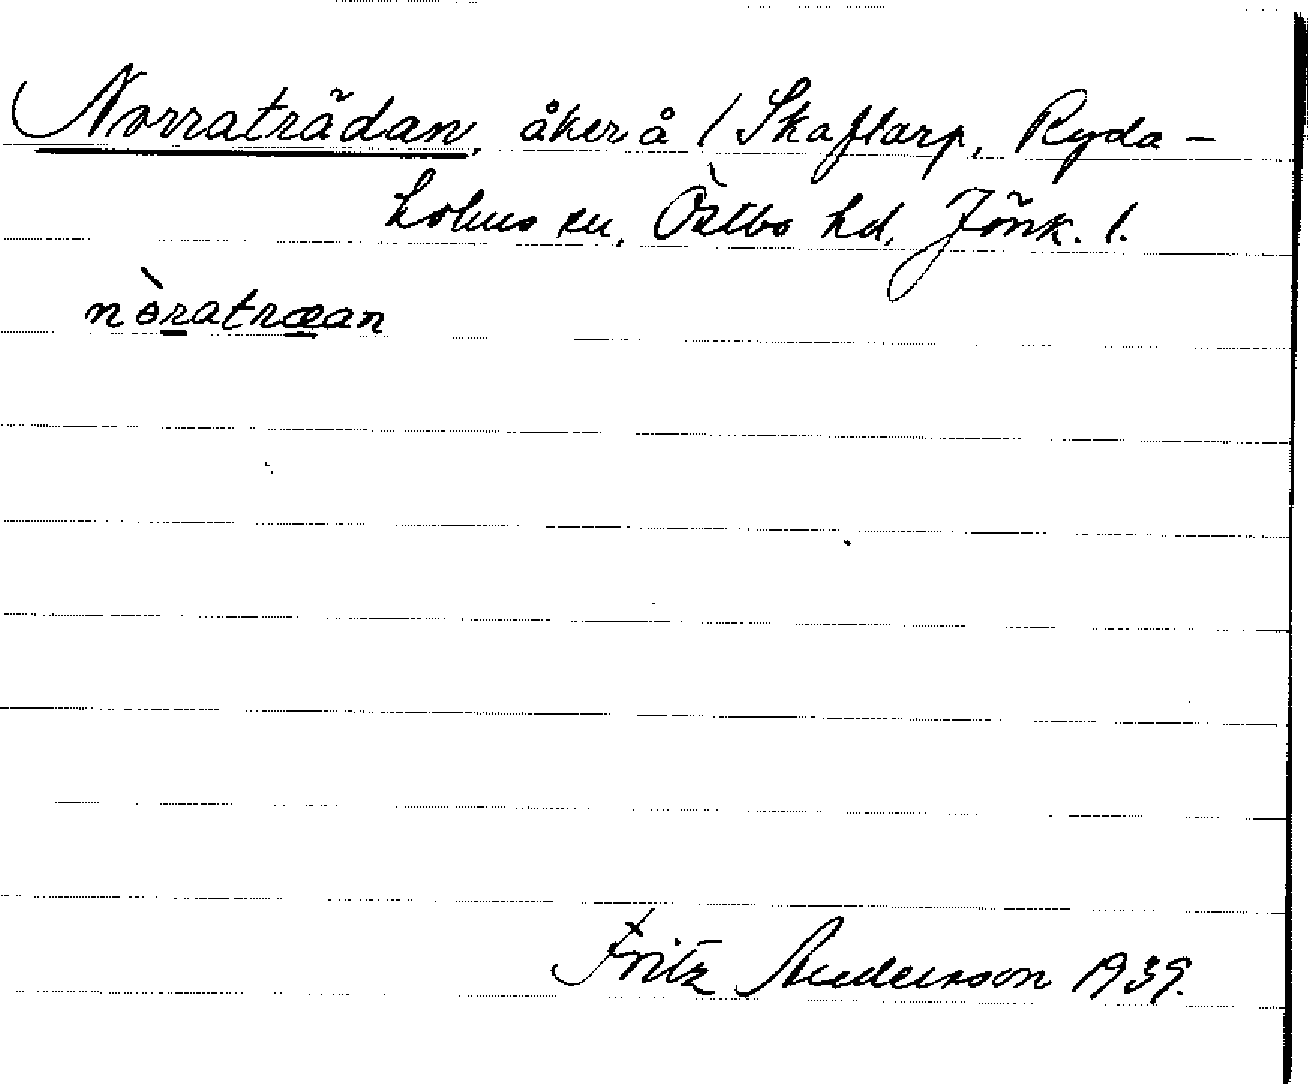 Norraträdan, åker å / Skaftarp, Ryda-
holms sn, Östbo hd, Jönk. l.
nòratræan
Fritz Anderson 1939.